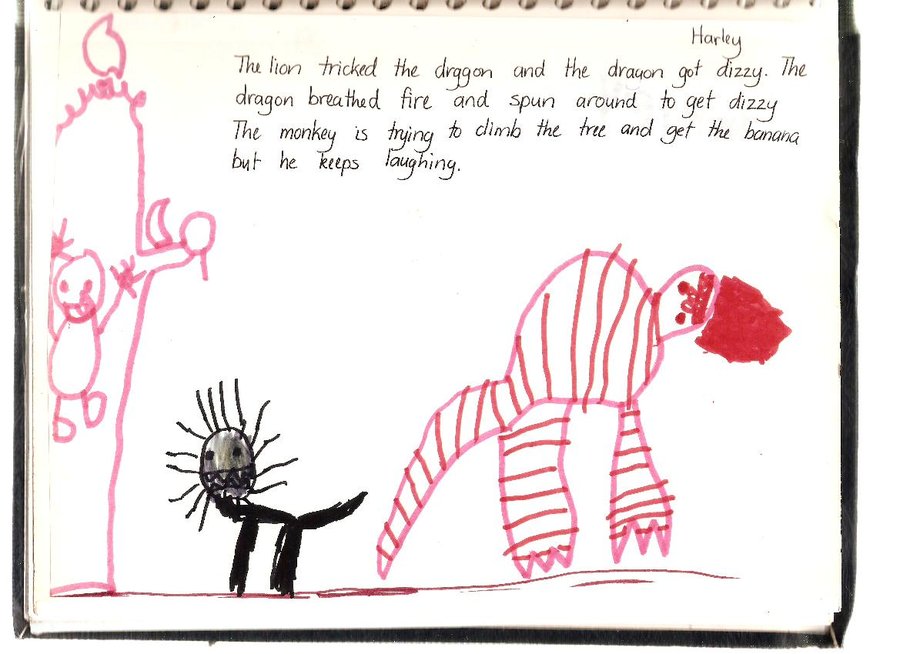 Harley
The lion tricked the drggon and the dragon got dizzy. The
dragon breathed fire and spun around to get dizzy
The monkey is trying to climb the tree and get the banana
but he keeps laughing.